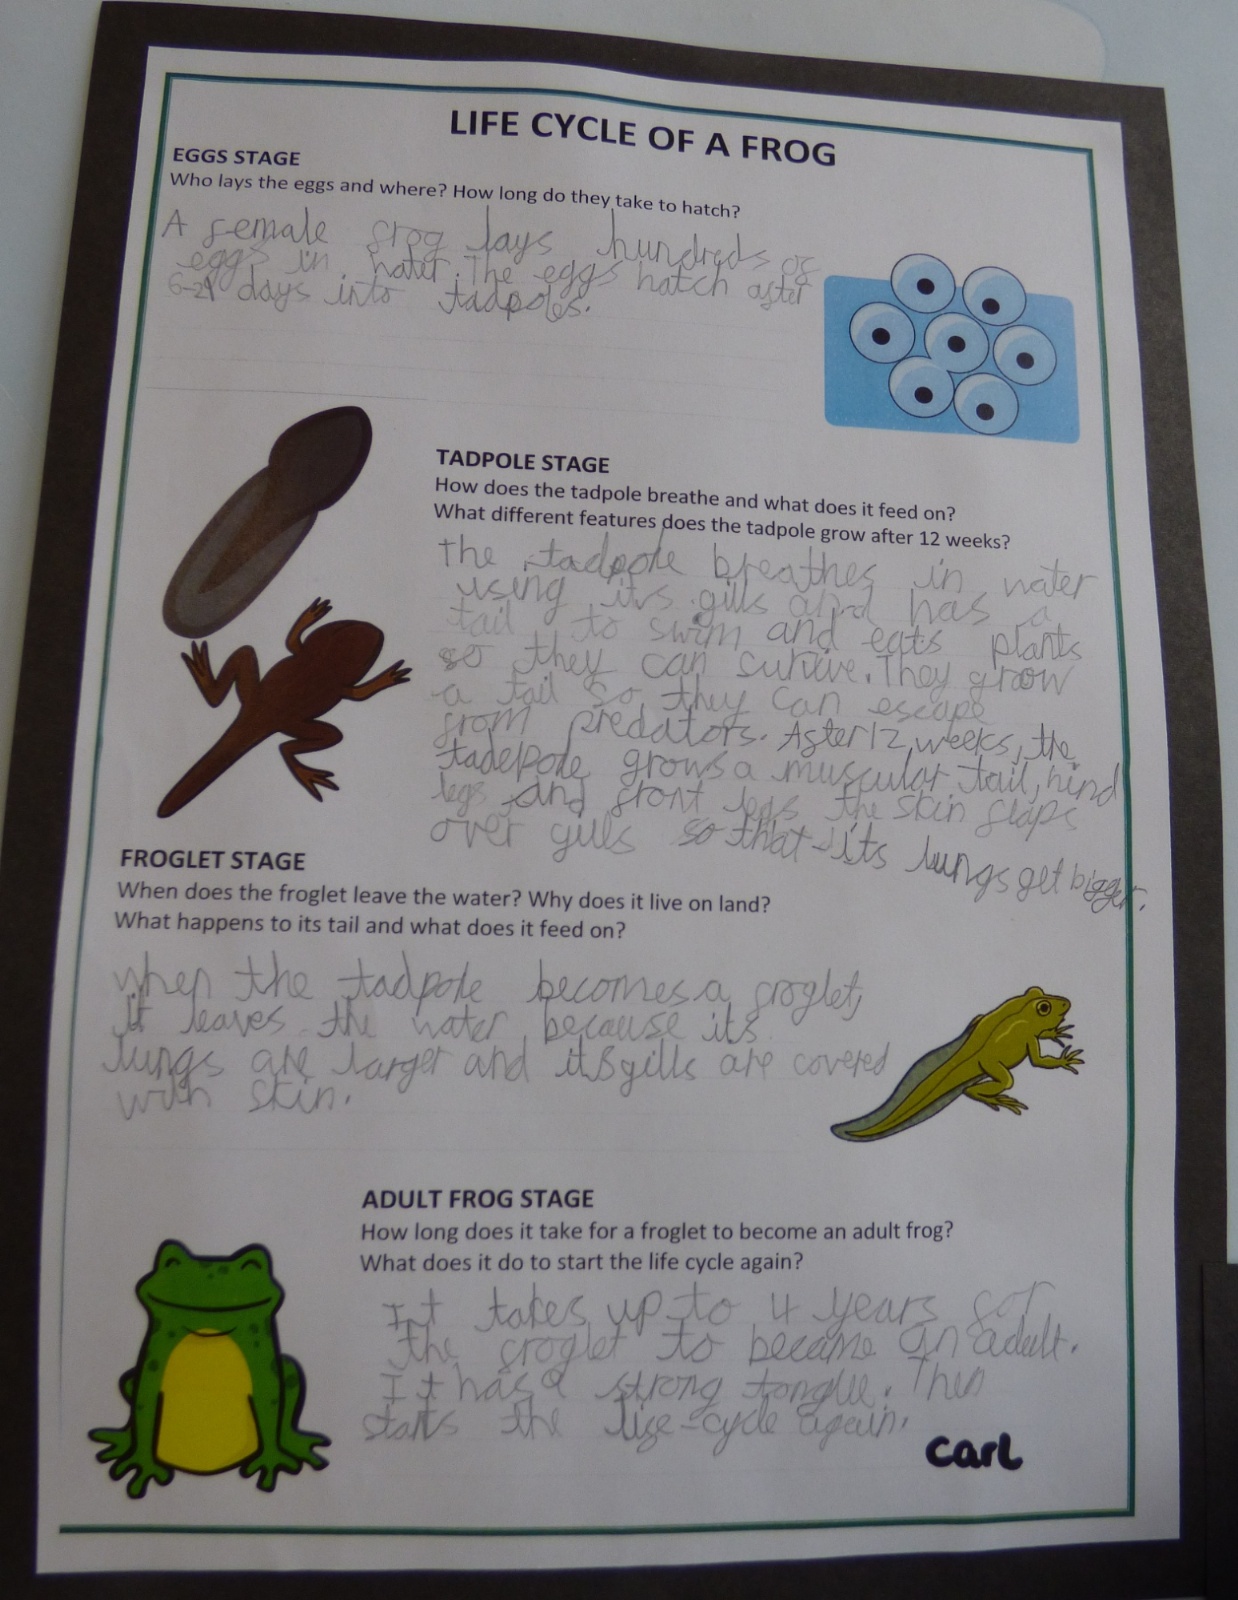 LIFE CYCLE OF A FROG
EGGS STAGE
Who lays the eggs and where? How long do they take to hatch?
A female frog lays hundreds of
eggs in water. The eggs hatch after
6-21 days into tadpoles.
TADPOLE STAGE
How does the tadpole breathe and what does it feed on?
What different features does the tadpole grow after 12 weeks?
The tadpole breathes in water
using its gills and has a
tail to swim and eats plants
so they can survive. They grow
a tail so they can escape
from predators. After 12 weeks, the
tadepole grows a muscular tail, hind
legs and front legs the skin flaps
over gills so that its lungs get bigger.
FROGLET STAGE
When does the froglet leave the water? Why does it live on land?
What happens to its tail and what does it feed on?
When the tadpole becomes a froglet,
it leaves the water because its
lungs are larger and its gills are covered
with skin.
ADULT FROG STAGE
How long does it take for a froglet to become an adult frog?
What does it do to start the life cycle again?
It takes up to 4 years for
the froglet to became an adult.
It has a strong tongue. Then
starts the life-cycle again.
carl